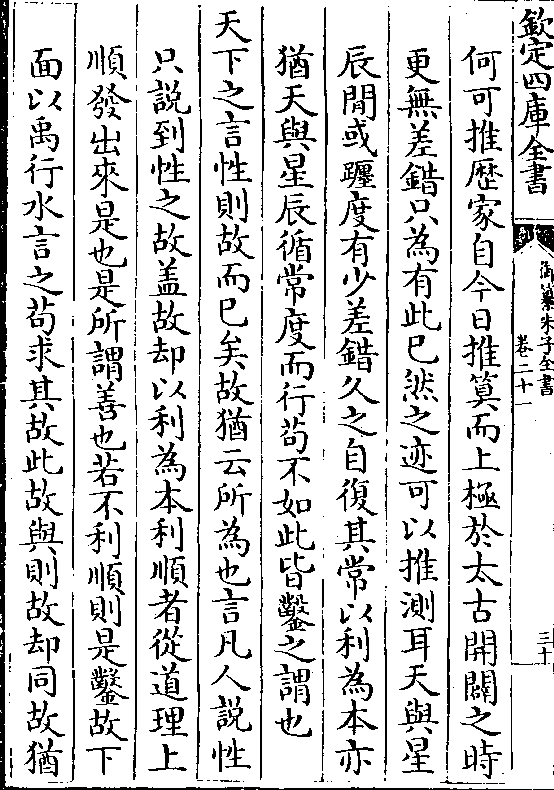 欽定四庫全書
御纂朱子全書
卷二十一
三十
何可推歴家自今日推算而上極於太古開闢之時
更無差錯只為有此已然之迹可以推測耳天與星
辰間或躔度有少差錯久之自復其常以利為本亦
猶天與星辰循常度而行苟不如此皆鑿之謂也
天下之言性則故而已矣故猶云所為也言凡人說性
只說到性之故盖故却以利為本利順者從道理上
順發出來是也是所謂善也若不利順則是鑿故下
面以禹行水言之茍求其故此故與則故却同故猶